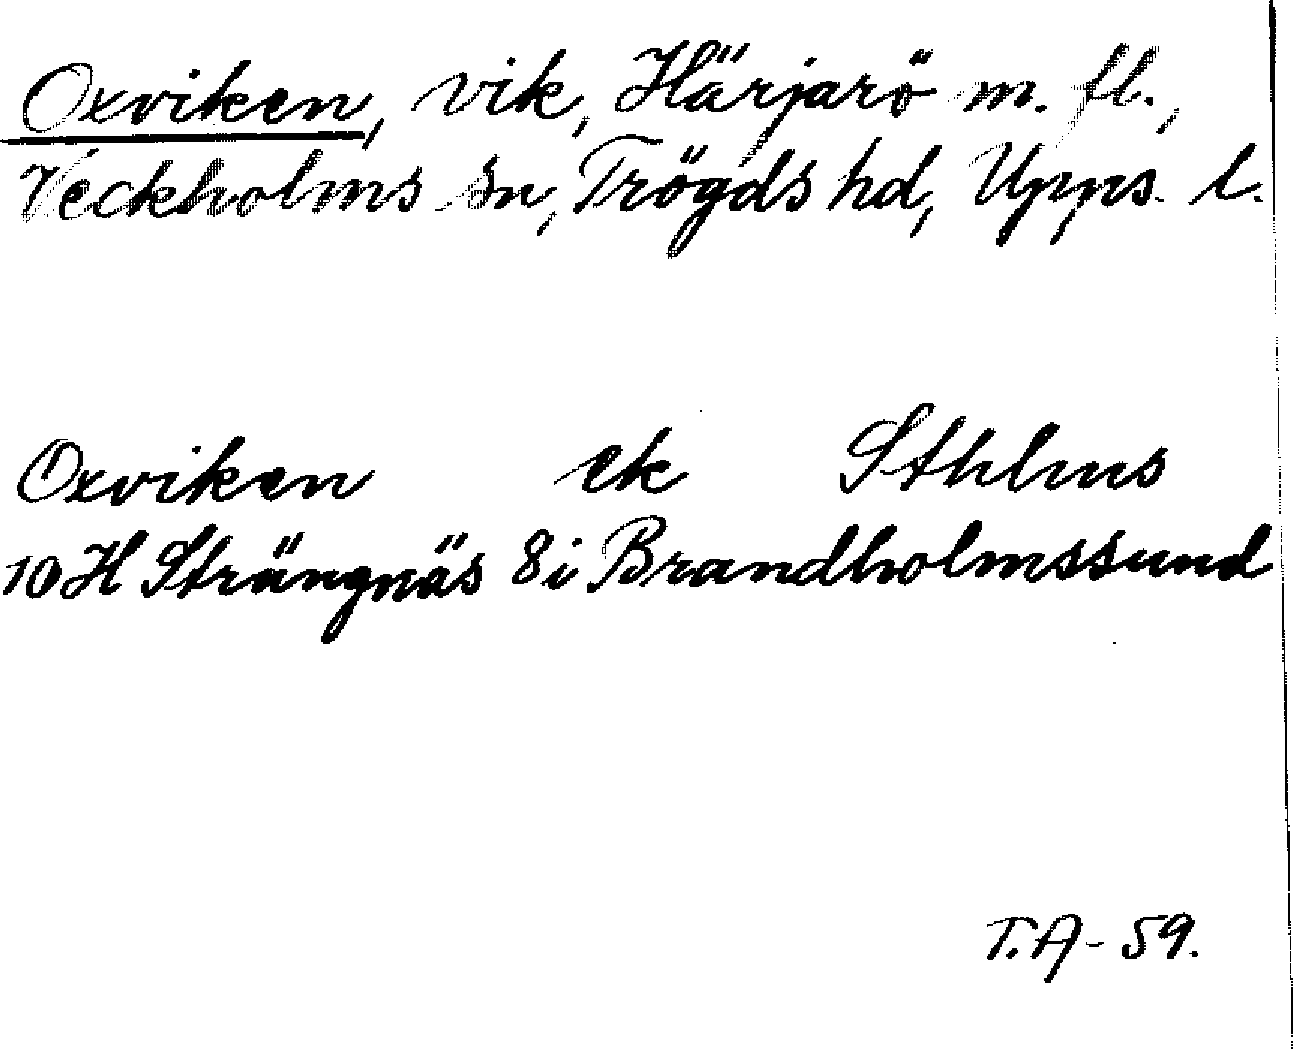 Oxviken, vik, Härjarö m. fl.,
Veckholms sn, Trögds hd, Upps. l.
Oxviken ek Sthlms
10 H Strängnäs 8i Brandholmssund
T.A- 59.